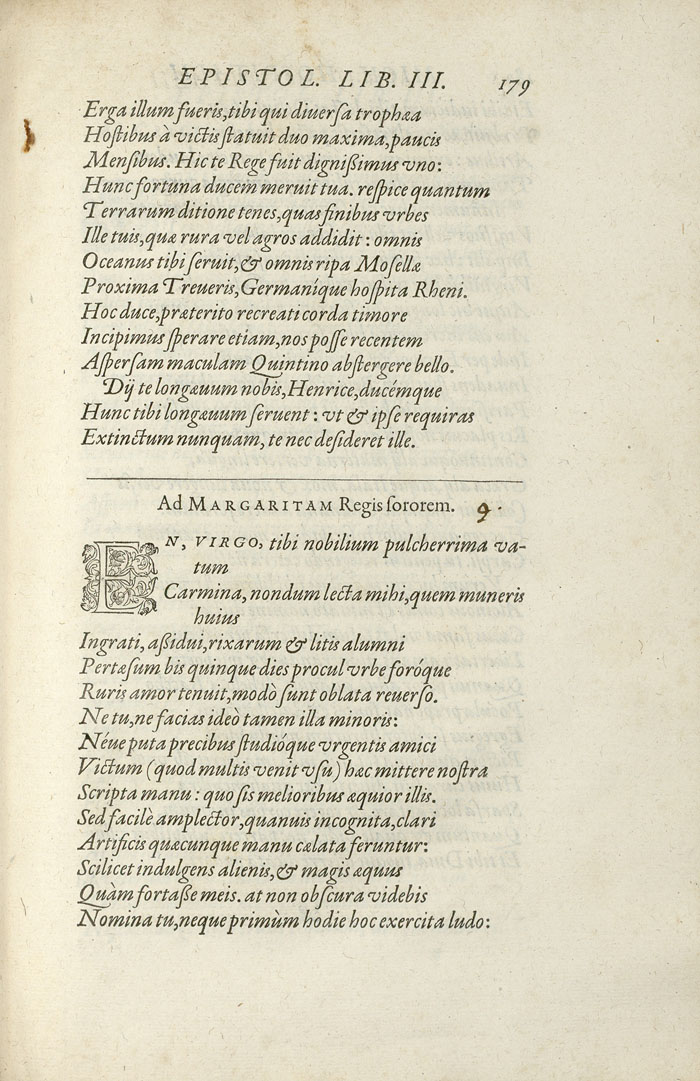 EPISTOL. LIB. III. 179
Erga illum fueris, tibi qui diuersa trophæa
Hostibus à victis statuit duo maxima, paucis
Mensibus. Hic te Rege fuit dignißimus vno:
Hunc fortuna ducem meruit tua. respice quantum
Terrarum ditione tenes, quas finibus vrbes
Ille tuis, quæ rura vel agros addidit: omnis
Oceanus tibi seruit, & omnis ripa Mosellæ
Proxima Treueris, Germaníque hospita Rheni.
Hoc duce, præterito recreati corda timore
Incipimus sperare etiam, nos posse recentem
Aspersam maculam Quintino abstergere bello.
Dij te longæuum nobis, Henrice, ducémque
Hunc tibi longæuum seruent: vt & ipse requiras
Extinctum nunquam, te nec desideret ille.
Ad MARGARITAM Regis sororem. 9.
EN, VIRGO, tibi nobilium pulcherrima va-
tum
Carmina, nondum lecta mihi, quem muneris
huius
Ingrati, aßidui, rixarum & litis alumni
Pertæsum bis quinque dies procul vrbe foróque
Ruris amor tenuit, modò sunt oblata reuerso.
Ne tu, ne facias ideò tamen illa minoris:
Néue puta precibus studióque vrgentis amici
Victum (quod multis venit vsu) hæc mittere nostra
Scripta manu: quo sis melioribus æquior illis.
Sed facilè amplector, quanuis incognita, clari
Artificis quæcunque manu cælata feruntur:
Scilicet indulgens alienis, & magis æquus
Quàm fortaße meis. at non obscura videbis
Nomina tu, neque primùm hodie hoc exercita ludo: